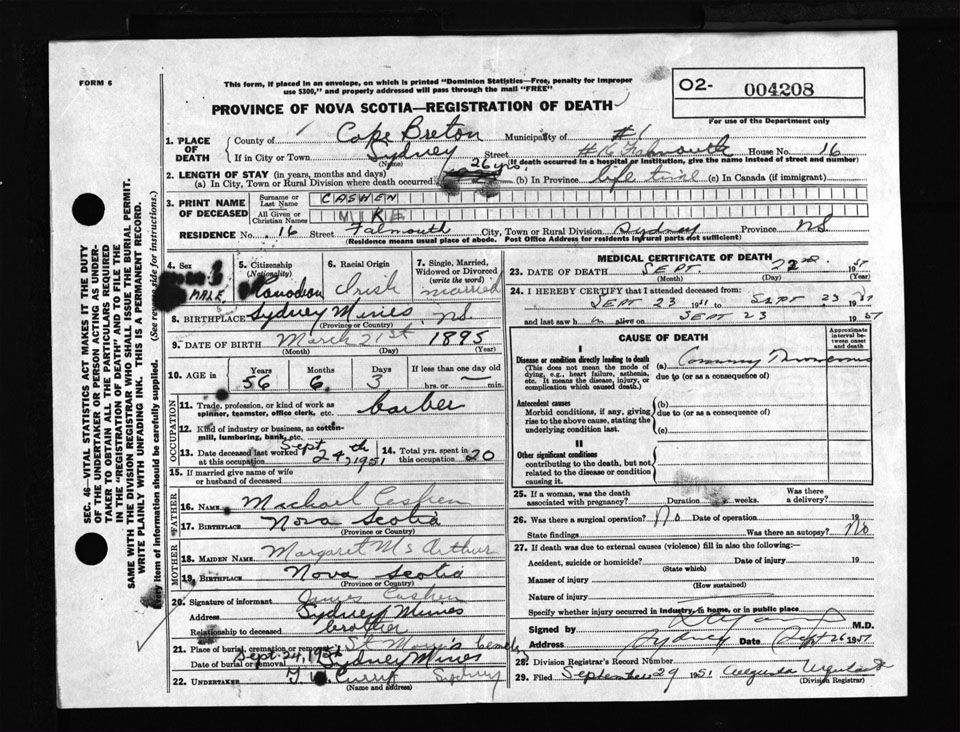 FORM 6
This form, if placed in an envelope, on which is printed "Dominion Statistics—Free, penalty for improper
use $300," and properly addressed will pass through the mail "FREE"
PROVINCE OF NOVA SCOTIA—REGISTRATION OF DEATH
O2- 004208
For use of the Department only
1. PLACE OF DEATH
County of Cape Breton Municipality of #1
If in City or Town Sydney Street #16 Falmouth House No. 16
(Name) (If death occurred in a hospital or institution, give the name instead of street and number)
2. LENGTH OF STAY (in years, months and days) 26 yrs.
(a) In City, Town or Rural Division where death occurred (b) In Province life time (c) In Canada (if immigrant)
3. PRINT NAME OF DECEASED
Surname or Last Name CASHEN
All Given or Christian Names MIKE
RESIDENCE No. 16 Street Falmouth City, Town or Rural Division Sydney Province NS
(Residence means usual place of abode. Post Office Address for residents in rural parts not sufficient)
4. Sex MALE
5. Citizenship (Nationality) Canadian
6. Racial Origin Irish
7. Single, Married, Widowed or Divorced (write the word) married
8. BIRTHPLACE Sydney Mines, NS.
(Province or Country)
9. DATE OF BIRTH March 21st 1895
(Month) (Day) (Year)
10. AGE in Years 56 Months 6 Days 3 If less than one day old
hrs. or min.
OCCUPATION
11. Trade, profession, or kind of work as spinner, teamster, office clerk, etc. barber
12. Kind of industry or business, as cotton-mill, lumbering, bank, etc.
13. Date deceased last worked at this occupation Sept 24th, 1951
14. Total yrs. spent in this occupation 20
15. If married give name of wife or husband of deceased
FATHER
16. NAME Cashen
17. BIRTHPLACE Nova Scotia
(Province or Country)
MOTHER
18. MAIDEN NAME Margaret McArthur
19. BIRTHPLACE Nova Scotia
(Province or Country)
20. Signature of informant James Cashen
Address Sydney Mines
Relationship to deceased brother
21. Place of burial, cremation or removal
Date of burial or removal Sept. 24, Sydney Mines
22. UNDERTAKER Curry Sydney
(Name and address)
MEDICAL CERTIFICATE OF DEATH
23. DATE OF DEATH SEPT. 1951
(Month) (Day)
24. I HEREBY CERTIFY that I attended deceased from:
SEPT 23 1951 to SEPT 23 1951
and last saw h im alive on SEPT 23 1951
CAUSE OF DEATH
Approximate interval between onset and death
I
Disease or condition directly leading to death
(This does not mean the mode of dying, e.g., heart failure, asthenia, etc. It means the disease, injury, or complication which caused death.)
(a)
due to (or as a consequence of)
Antecedent causes
Morbid conditions, if any, giving rise to the above cause, stating the underlying condition last.
(b)
due to (or as a consequence of)
(c)
II
Other significant conditions
contributing to the death, but not related to the disease or condition causing it.
25. If a woman, was the death associated with pregnancy? Duration weeks. Was there a delivery?
26. Was there a surgical operation? No Date of operation 19
State findings Was there an autopsy? No
27. If death was due to external causes (violence) fill in also the following:—
Accident, suicide or homicide? Date of injury 19
(State which)
Manner of injury
(How sustained)
Nature of injury
Specify whether injury occurred in industry, in home, or in public place
Signed by M.D.
Address Sydney Date Sept 26 1951
28. Division Registrar's Record Number
29. Filed September 29 1951
(Division Registrar)
SEC. 46—VITAL STATISTICS ACT MAKES IT THE DUTY
OF THE UNDERTAKER OR PERSON ACTING AS UNDER-
TAKER TO OBTAIN ALL THE PARTICULARS REQUIRED
IN THE "REGISTRATION OF DEATH" AND TO FILE THE
SAME WITH THE DIVISION REGISTRAR WHO SHALL ISSUE THE BURIAL PERMIT.
WRITE PLAINLY WITH UNFADING INK. THIS IS A PERMANENT RECORD.
Every item of information should be carefully supplied. (See reverse side for instructions.)